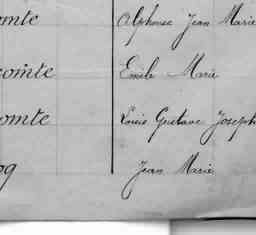 omte Alphonse Jean Marie
comte Emile Marie
omte Louis Gustave Joseph
Jean Marie